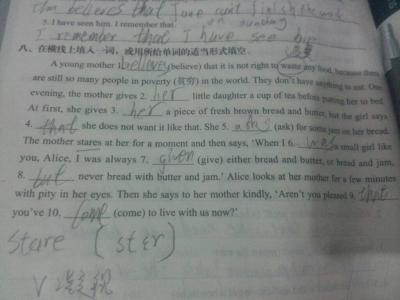 Tom believes that Jane can't finish the work
on sunday
3. I have seen him. I remember that.
I remember that I have see him
八、在横线上填入一词,或用所给单词的适当形式填空。
A young mother 1. believe (believe) that it is not right to waste any food, because there
are still so many people in poverty (贫穷) in the world. They don't have anything to eat. One
evening, the mother gives 2. her little daughter a cup of tea before putting her to bed.
At first, she gives 3. her a piece of fresh brown bread and butter, but the girl says
4. that she does not want it like that. She 5. asks (ask) for some jam on her bread.
The mother stares at her for a moment and then says, 'When I 6. was a small girl like
you, Alice, I was always 7. given (give) either bread and butter, or bread and jam,
8. but never bread with butter and jam.' Alice looks at her mother for a few minutes
with pity in her eyes. Then she says to her mother kindly, 'Aren't you pleased 9. that
you've 10. come (come) to live with us now?'
stare [ stεr ]
v 凝视